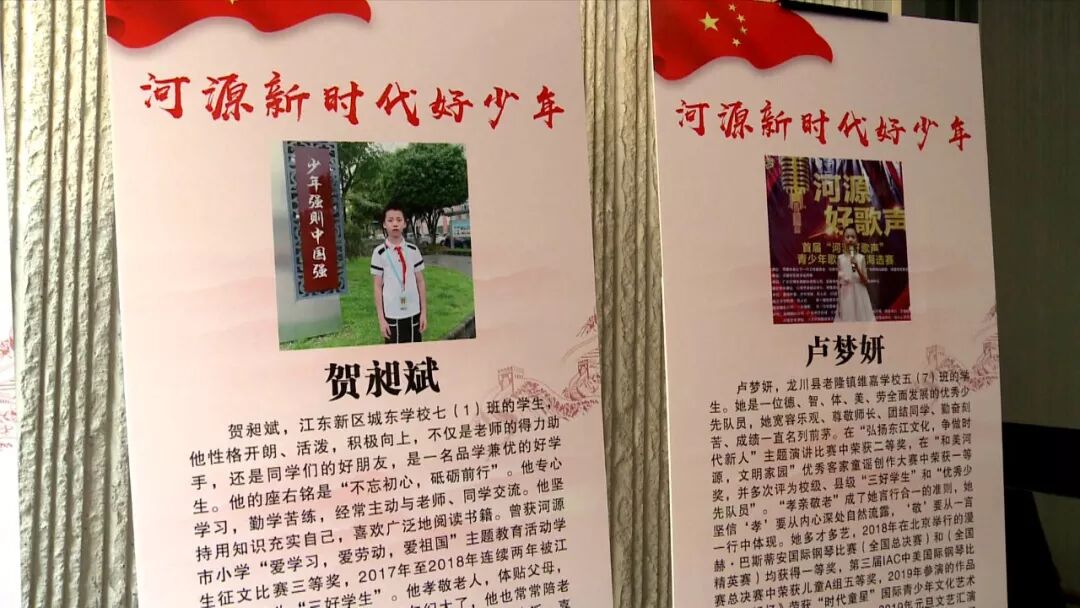 河源新时代好少年
少年强则中国强
贺昶斌
贺昶斌，江东新区城东学校七（1）班的学生，
他性格开朗、活泼，积极向上，不仅是老师的得力助
手，还是同学们的好朋友，是一名品学兼优的好学
生。他的座右铭是“不忘初心，砥砺前行”。他专心
学习，勤学苦练，经常主动与老师、同学交流。他坚
持用知识充实自己，喜欢广泛地阅读书籍。曾获河源
市小学“爱学习，爱劳动，爱祖国”主题教育活动学
生征文比赛三等奖，2017年至2018年连续两年被江
“三好学生”。他孝敬老人，体贴父母，
他也常常陪老
河源新时代好少年
河源
好歌声
首届“河源好歌声”
青少年歌 海选赛
卢梦妍
卢梦妍，龙川县老隆镇维嘉学校五（7）班的学
生。她是一位德、智、体、美、劳全面发展的优秀少
先队员，她宽容乐观、尊敬师长、团结同学、勤奋刻
苦、成绩一直名列前茅。在“弘扬东江文化，争做时
代新人”主题演讲比赛中荣获二等奖，在“和美河
源，文明家园”优秀客家童谣创作大赛中荣获一等
奖，并多次评为校级、县级“三好学生”和“优秀少
先队员”。“孝亲敬老”成了她言行合一的准则，她
坚信‘孝’要从内心深处自然流露，‘敬’要从一言
一行中体现。她多才多艺，2018年在北京举行的漫
赫·巴斯蒂安国际钢琴比赛（全国总决赛）和（全国
精英赛）均获得一等奖，第三届IAC中美国际钢琴比
赛总决赛中荣获儿童A组五等奖，2019年参演的作品
荣获“时代童星”国际青少年文化艺术
2019年元旦文艺汇演